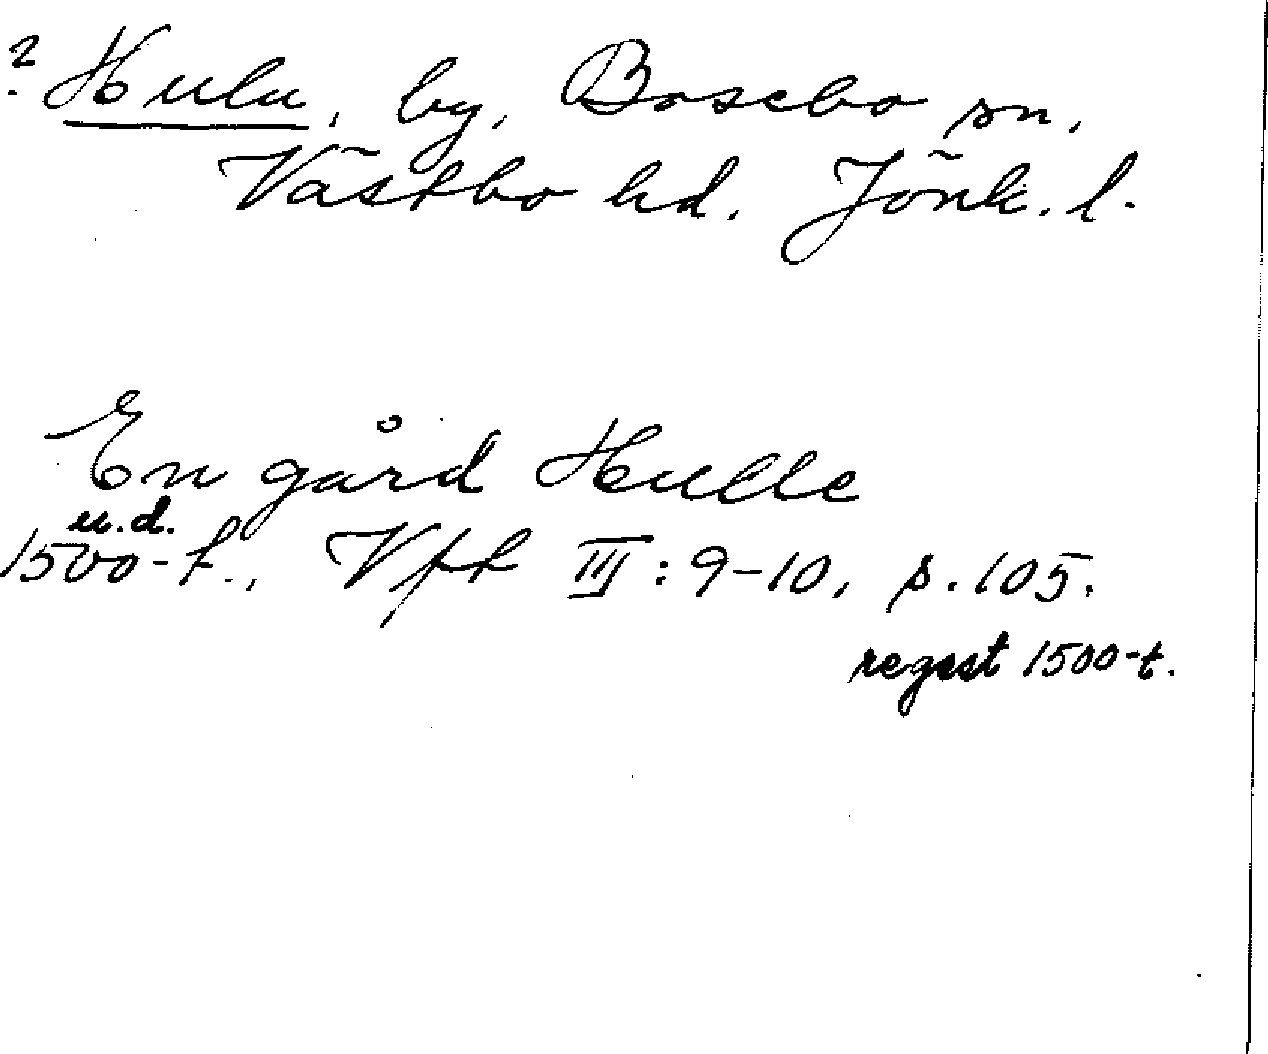 ? Hulu, by, Bosebo sn,
Västbo hd. Jönk. l.
En gård Hulle
u.d.
1500-t., Vfk III: 9-10, s. 105.
regest 1500-t.